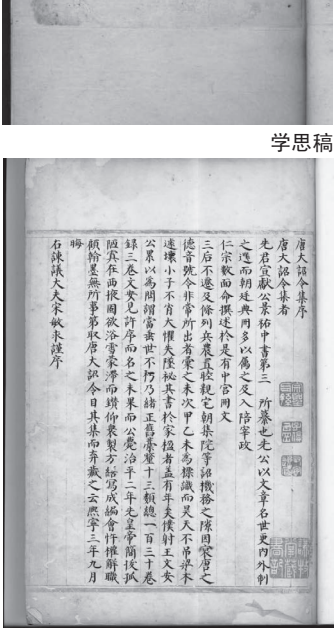 学思稿
唐大詔令集序
唐大詔令集者
先君宣獻公景祐中書第三 所纂也先公以文章名世更内外制
之選而朝廷典冊多以屬之及入陪宰政
仁宗數面命撰述於是有中宫冊文
三后不遷及條列兵農直監親宅朝集院等詔機務之隙因裒唐之
德音號令非常所出者彙之未次甲乙未為標識而昊天不吊梁木
遽壞小子不肖大懼失墜祕其書於家楹者蓋有年矣僕射王文安
公累以為問謂當垂世不朽乃緒正舊藁釐十三類總一百三十卷
録三卷文安見許序而名之未果而公薨治平二年先皇帝簡拔孤
陋寘在西掖
顧翰墨無所事第取唐大詔令目其集而弆藏之云熙寧三年九月
晦
右諫議大夫宋敏求謹序